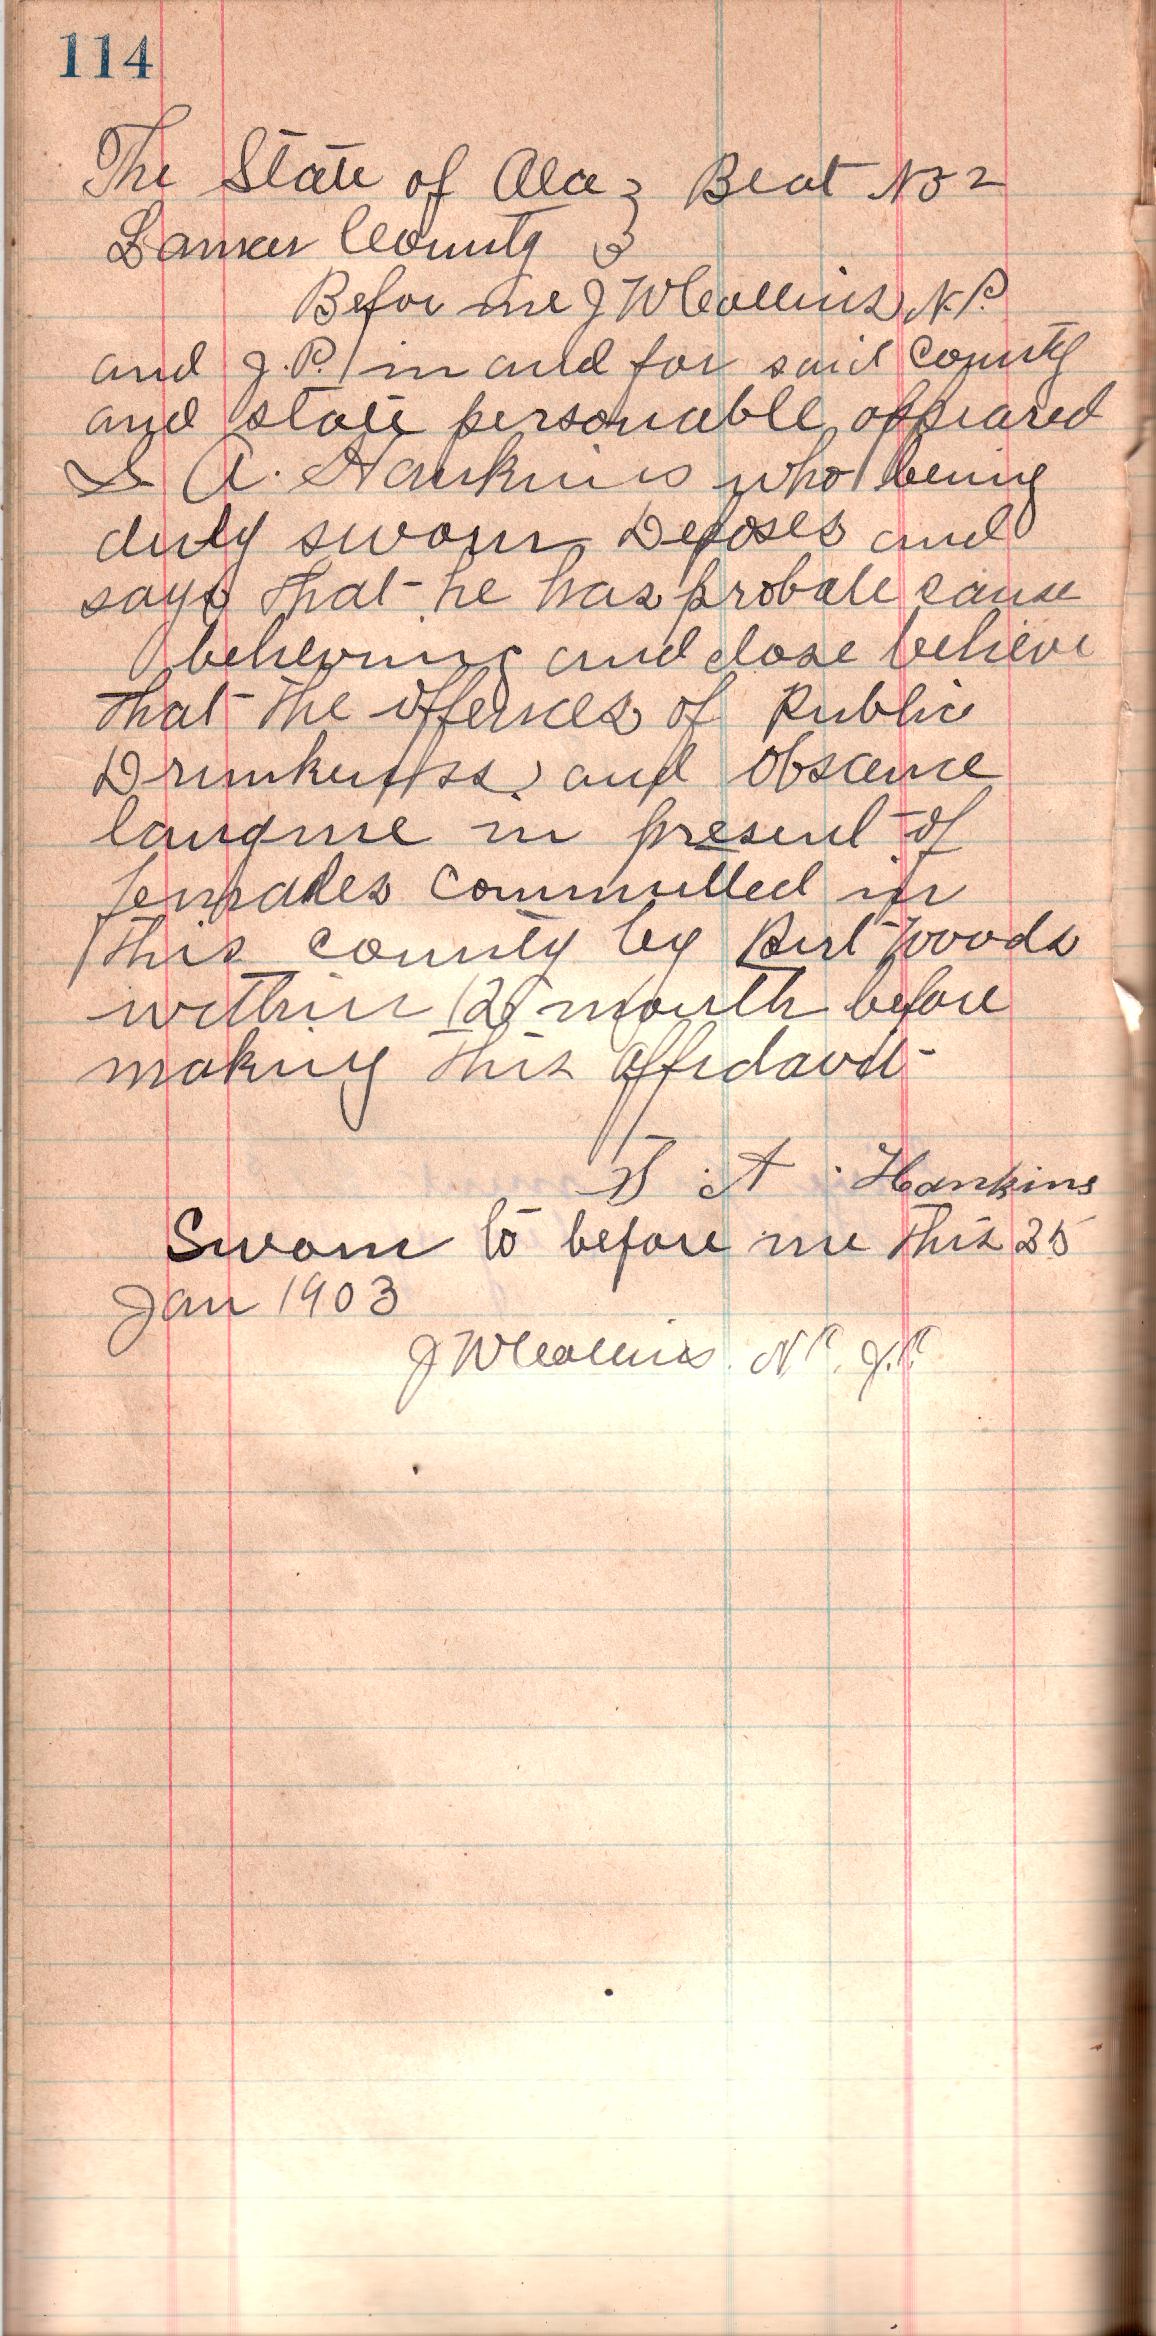 114
The State of Ala } Beat No 2
Lamar County }
Befor me J W Collins N.P.
and J.P. in and for said County
and state personable appeared
S A. Hankins who being
duly sworn Deposes and
says that he has probale cause
beheving and dose believe
that the offences of Public
Drunkenss, and obscence
langue in present of
females committed in
this county by Burt Woods
within 12 month before
making this affidavit
S. A. Hankins
Sworn to before me this 25
Jan 1903
J W Collins. N.P. J.P.